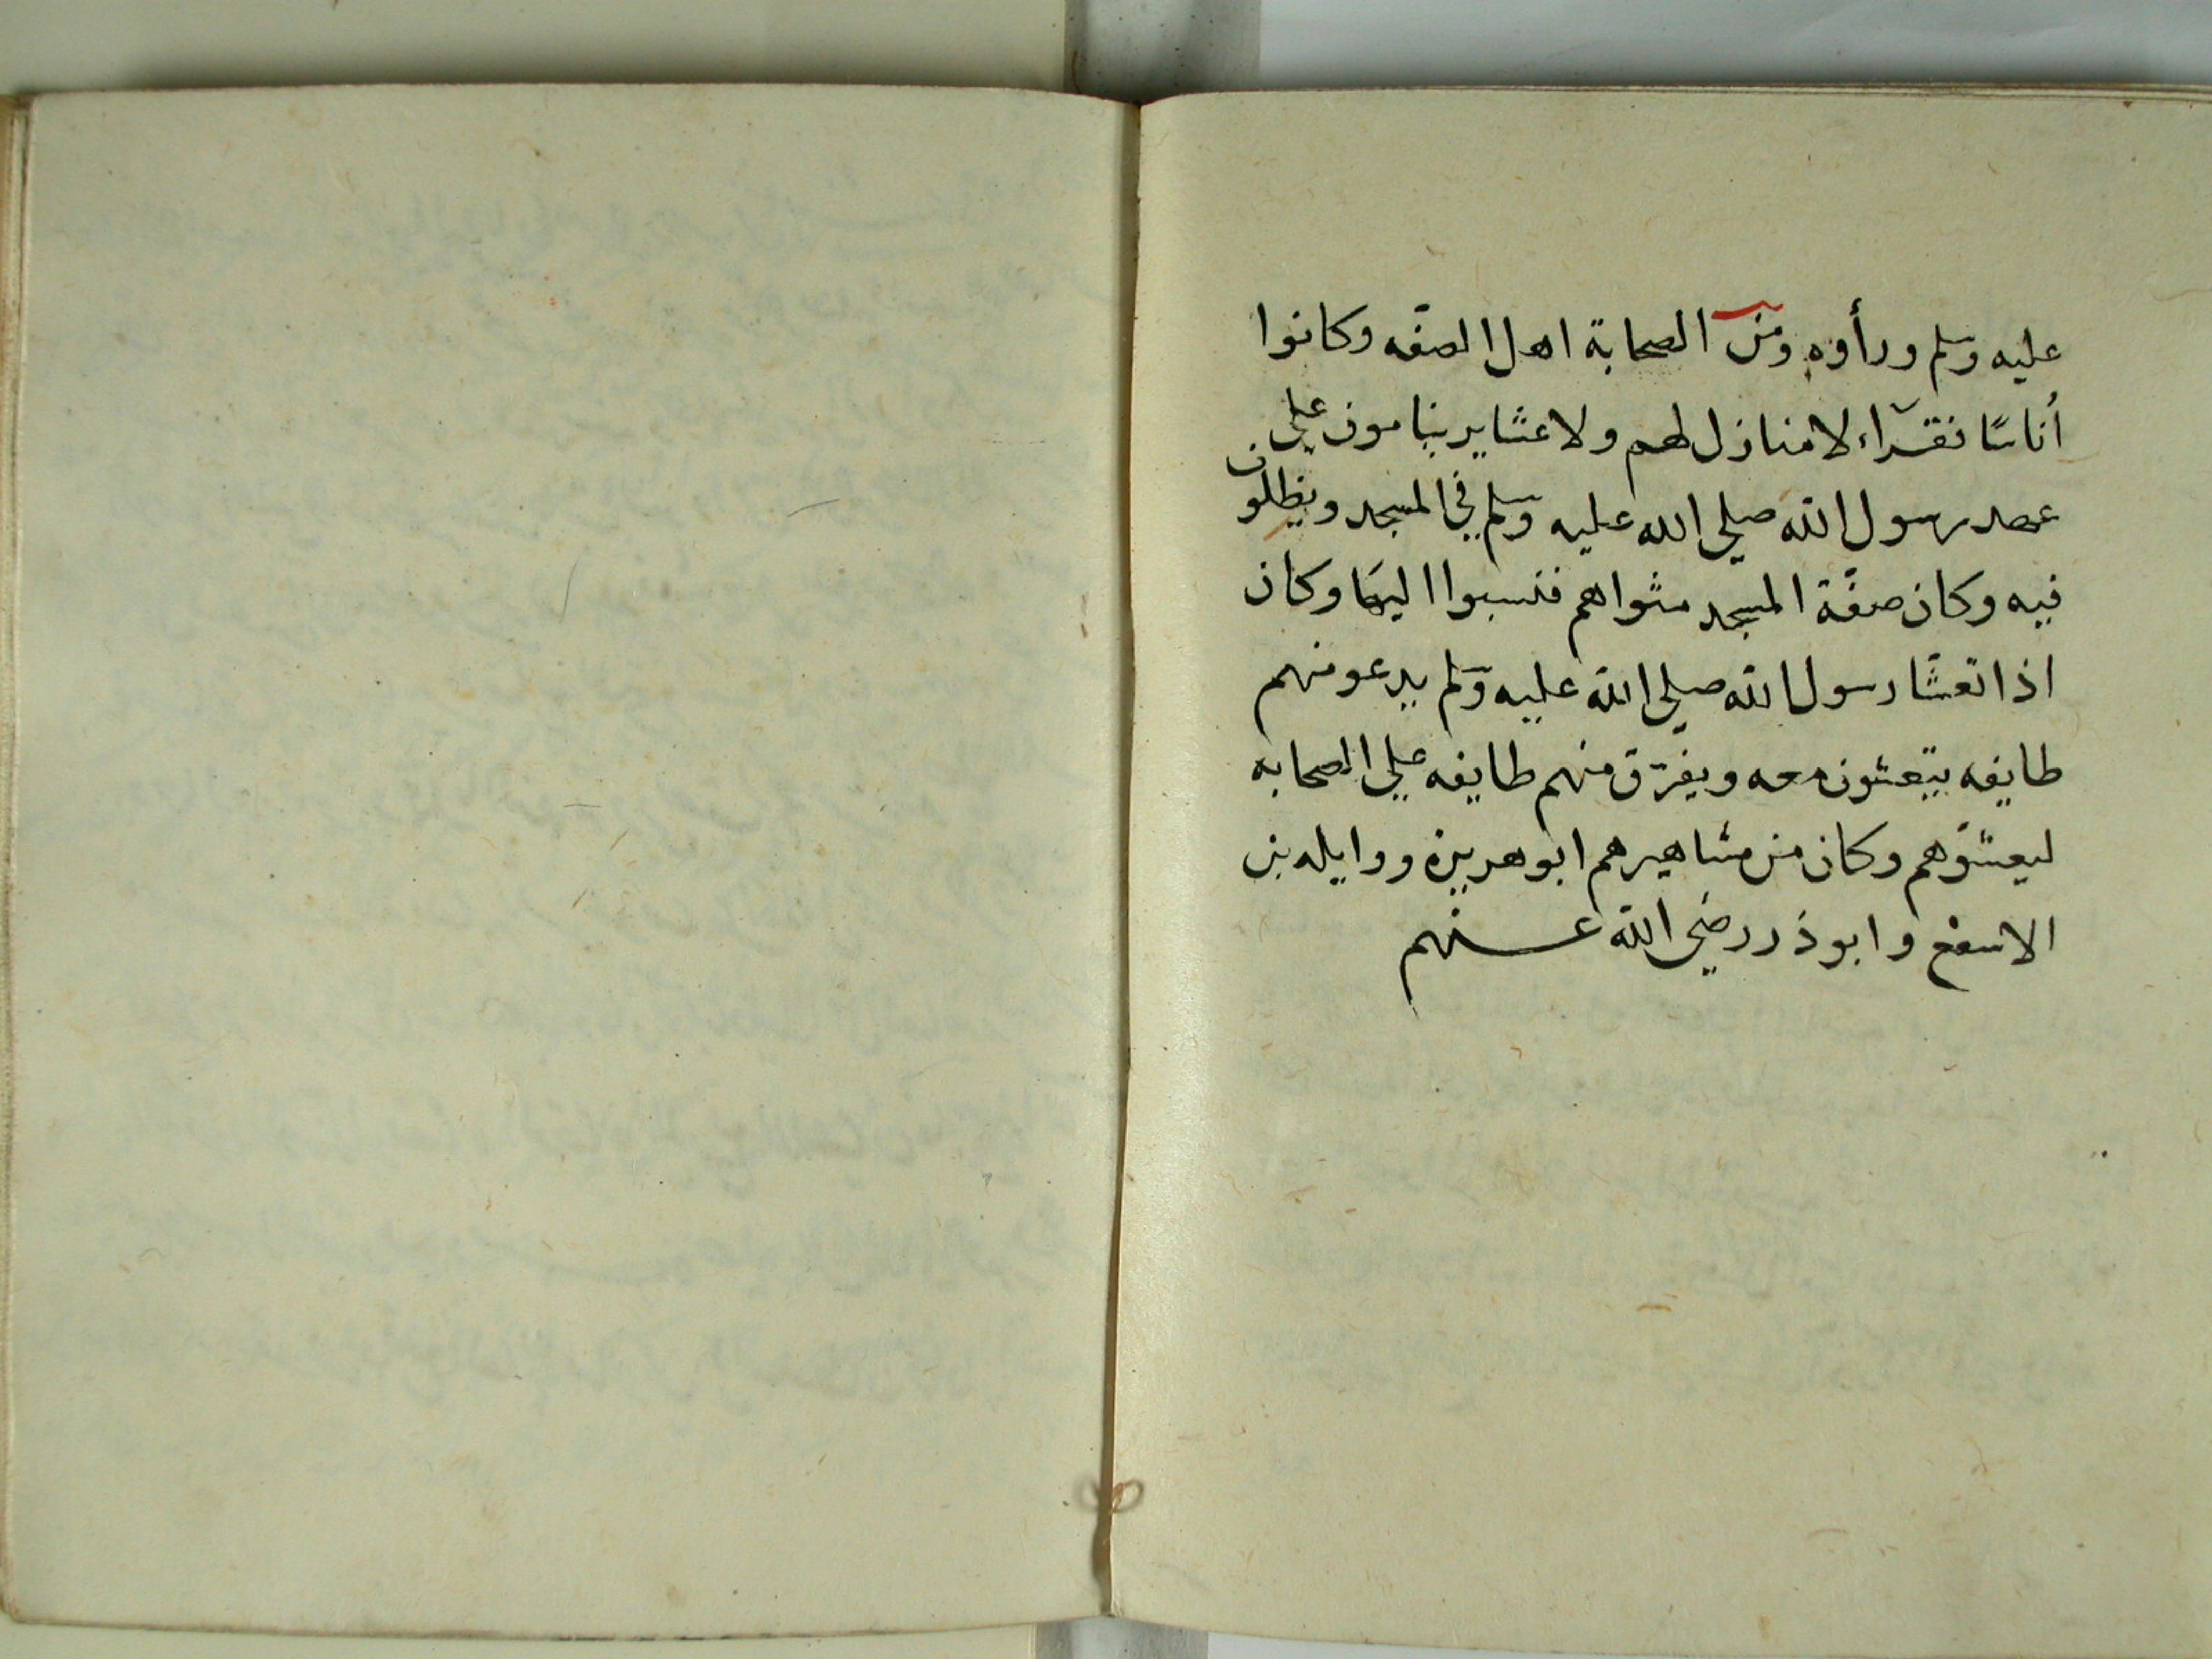 عليه وسلم ورأوه ومن الصحابة اهل الصفّه وكانوا
أناسًا فقراء لا منازل لهم ولا عشاير ينامون علي
عهد رسول الله صلي الله عليه وسلم في المسجد ويظلون
فيه وكان صفّة المسجد مثواهم فنسبوا اليها وكان
اذا تعشّا رسول الله صلي الله عليه وسلم يدعو منهم
طايفه يتعشون معه ويفرّق منهم طايفه علي الصحابه
ليعشوهم وكان من مشاهيرهم ابو هريرة ووايله بن
الاسقع وابو ذر رضي الله عنهم